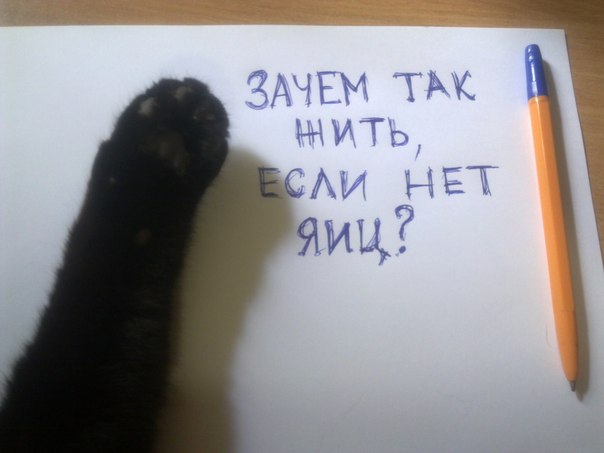 ЗАЧЕМ ТАК
ЖИТЬ,
ЕСЛИ НЕТ
ЯИЦ?